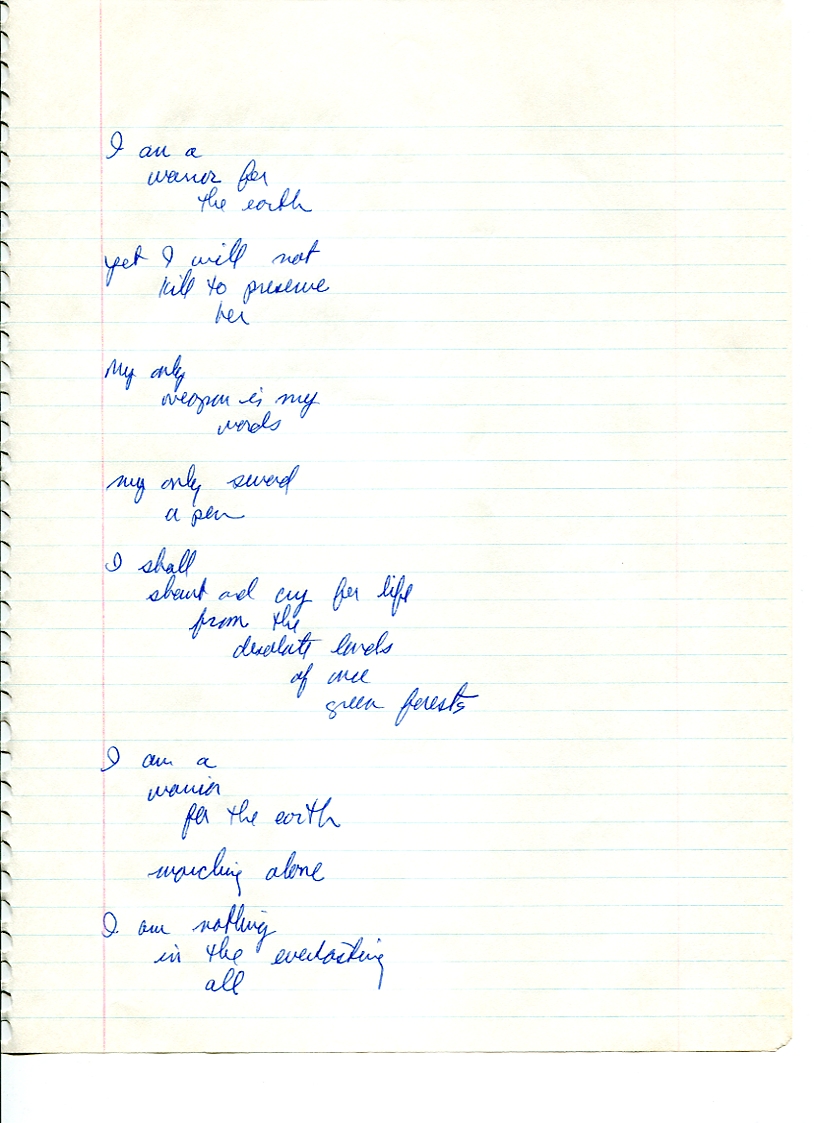 I am a
warrior for
the earth
yet I will not
kill to preserve
her
My only
weapon is my
words
my only sword
a pen
I shall
shout and cry for life
from the
desolate lands
of once
green forests
I am a
warrior
for the earth
marching alone
I am nothing
in the everlasting
all